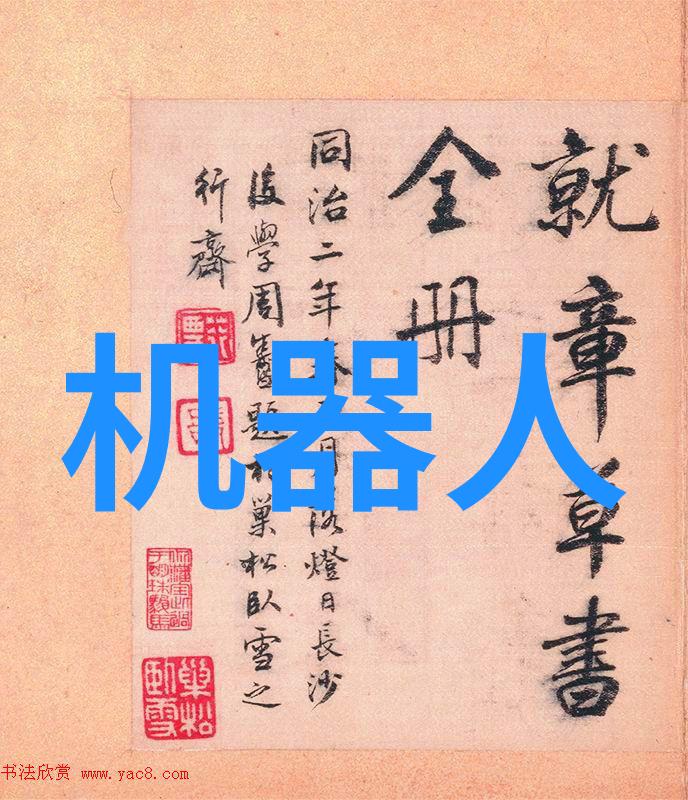 就章草書
全冊
同治二年春月落燈日長沙
後學周題於巢松臥雪之
行齋
巢松臥雪
机器人
书法欣赏 www.yac8.com